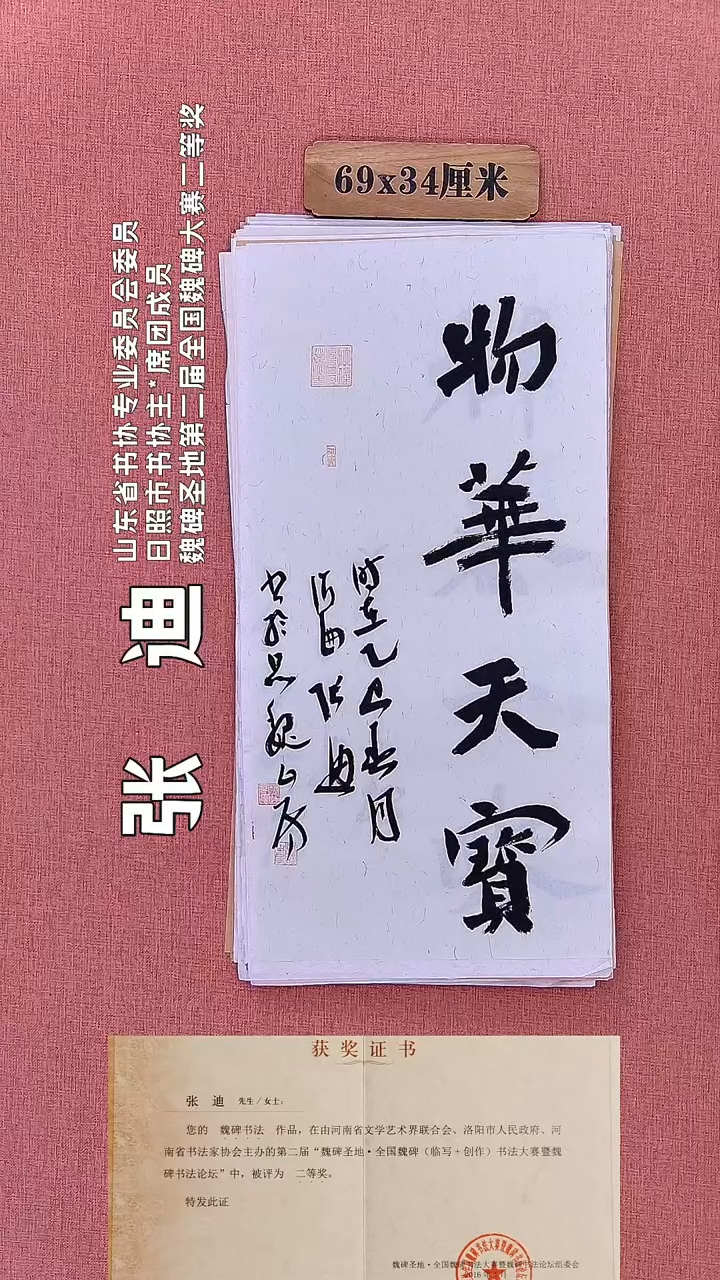 69x34厘米
物華天寶
时在乙巳春月
张迪
山东省书协专业委员会委员
日照市书协主*席团成员
魏碑圣地第二届全国魏碑大赛二等奖
张 迪
获奖证书
张 迪 先生/女士：
您的 魏碑书法 作品，在由河南省文学艺术界联合会、洛阳市人民政府、河
南省书法家协会主办的第二届“魏碑圣地·全国魏碑（临写+创作）书法大赛暨魏
碑书法论坛”中，被评为 二等奖。
特发此证
魏碑圣地·全国魏碑书法大赛暨魏碑书法论坛组委会